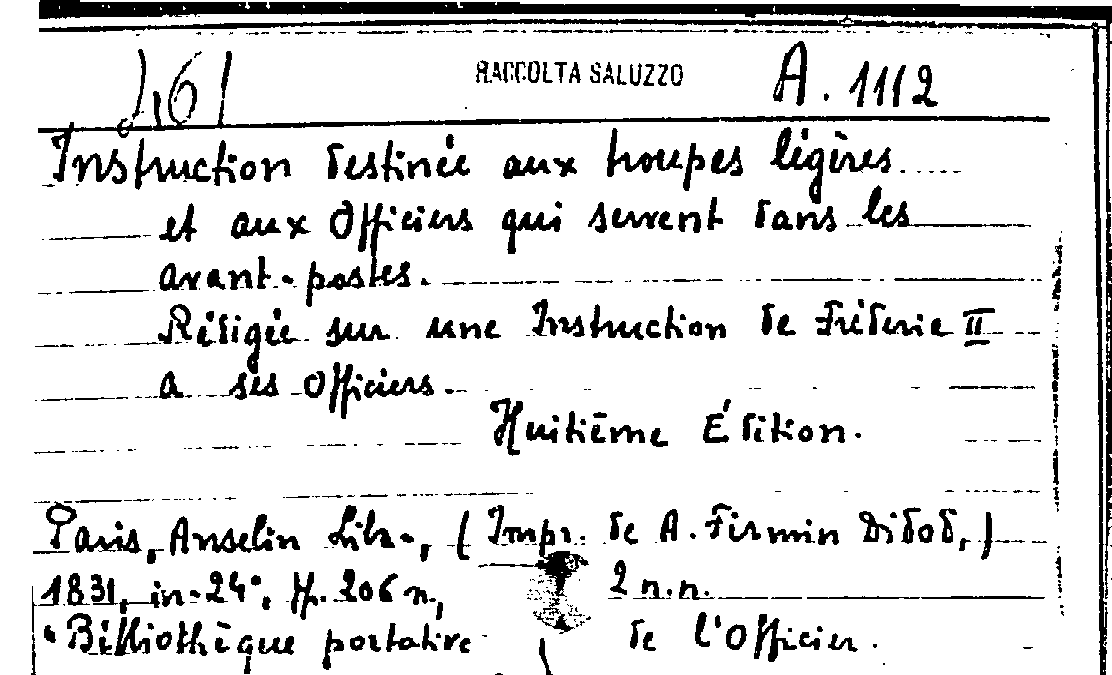 461 RACCOLTA SALUZZO A. 1112
Instruction destinée aux troupes légères
et aux Officiers qui servent dans les
avant-postes.
Rédigée sur une Instruction de Fréderic II
a ses Officiers.
Huitième Édition.
Paris, Anselin Libr., (Impr. de A. Firmin Didod,)
1831, in-24°, pp. 206 n, 2 n.n.
"Bibliothèque portative de l'Officier.